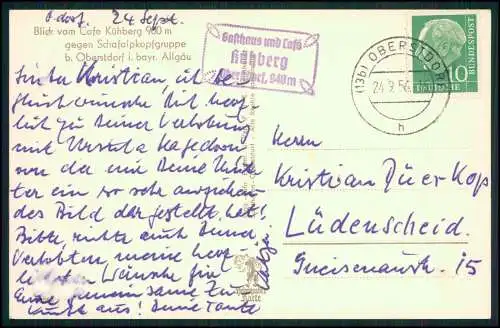 O.dorf, 24 Sept.
Blick vom Cafe Kühberg 900 m
gegen Schafalpkopfgruppe
b. Oberstdorf i. bayr. Allgäu
Gasthaus und Café
Kühberg
Oberstdorf, 940 m
(13b) OBERSTDORF
24.9.56
h
10
DEUTSCHE
BUNDESPOST
Kristian, ich be
glückwünsche Dich herz
lich zu Deiner Verlobung
mit Ursula
von der mir Deine
ter ein so sehr ansprechen
des Bild dargestellt hat!
Bitte, richte auch Deiner
Verlobten, meine herz
lichsten Wünsche für
Eure gemeinsame Zu
kunft aus! Deine Tante
Herrn
Kristian
Lüdenscheid
Gneisenaustr. 15
Karte